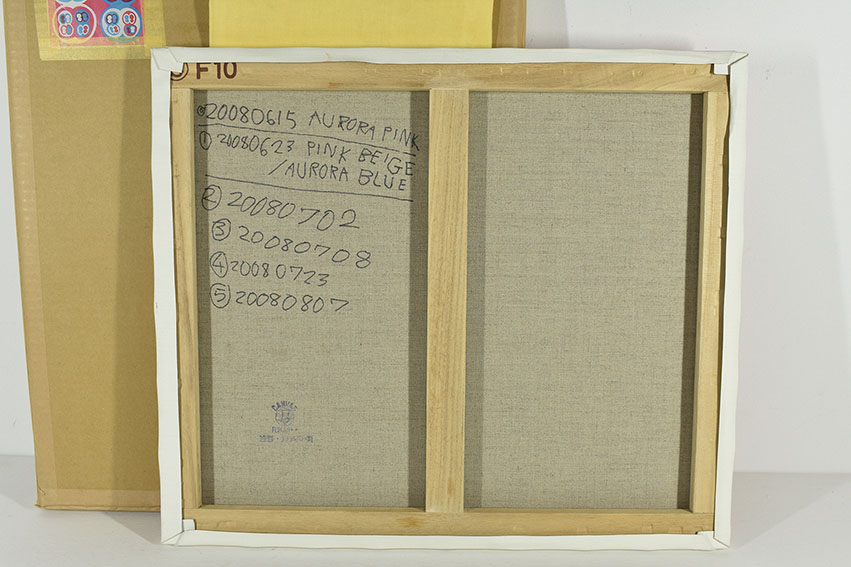 F10
20080615 AURORA PINK
① 20080623 PINK BEIGE
/AURORA BLUE
② 20080702
③ 20080708
④ 20080723
⑤ 20080807
CANVAS